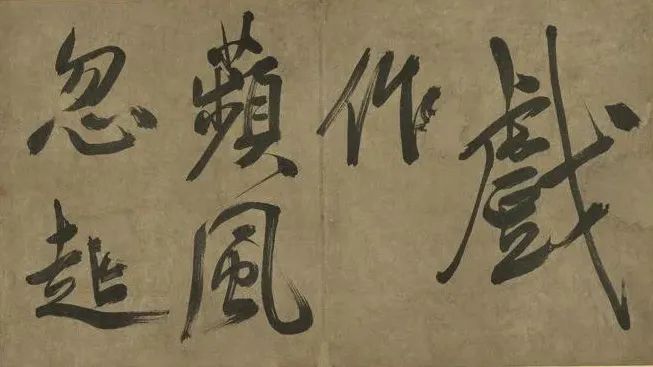 戲
作
蘋風
忽起